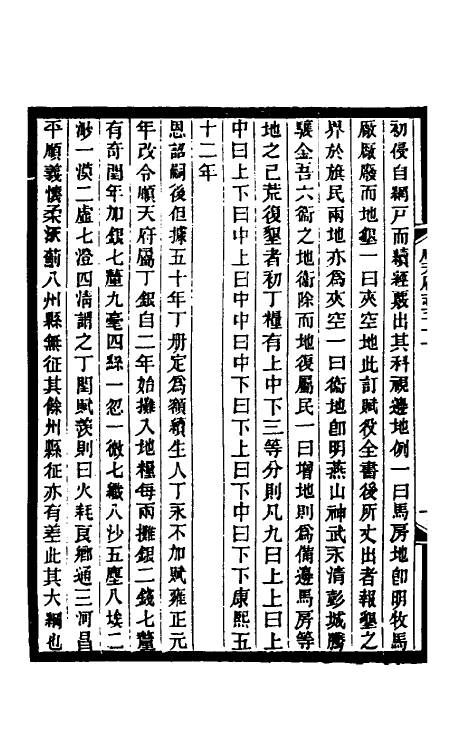 初侵自網戸而續經嚴出其科視邊地例一曰馬房地卽明牧馬
厰厰廢而地墾一曰夾空地此訂賦役全書後所丈出者報墾之
界於旗民兩地亦爲夾空一曰衞地卽明燕山神武永清彭城騰
驤金吾六衞之地衞除而地復屬民一曰增地則爲備邊馬房等
地之己荒復墾者初丁糧有上中下三等分則凡九曰上上曰上
中曰上下曰中上曰中中曰中下曰下上曰下中曰下下康熙五
十二年
恩詔嗣後但據五十年丁册定爲額續生人丁永不加賦雍正元
年改令順天府屬丁銀自二年始攤入地糧每兩攤銀二錢七釐
有奇閏年加銀七釐九毫四絲一忽一微七纖八沙五塵八埃二
渺一漠二虛七澄四清謂之丁閏賦羨則曰火耗良鄉通三河昌
平順義懷柔涿薊八州縣無征其餘州縣征亦有差此其大綱也